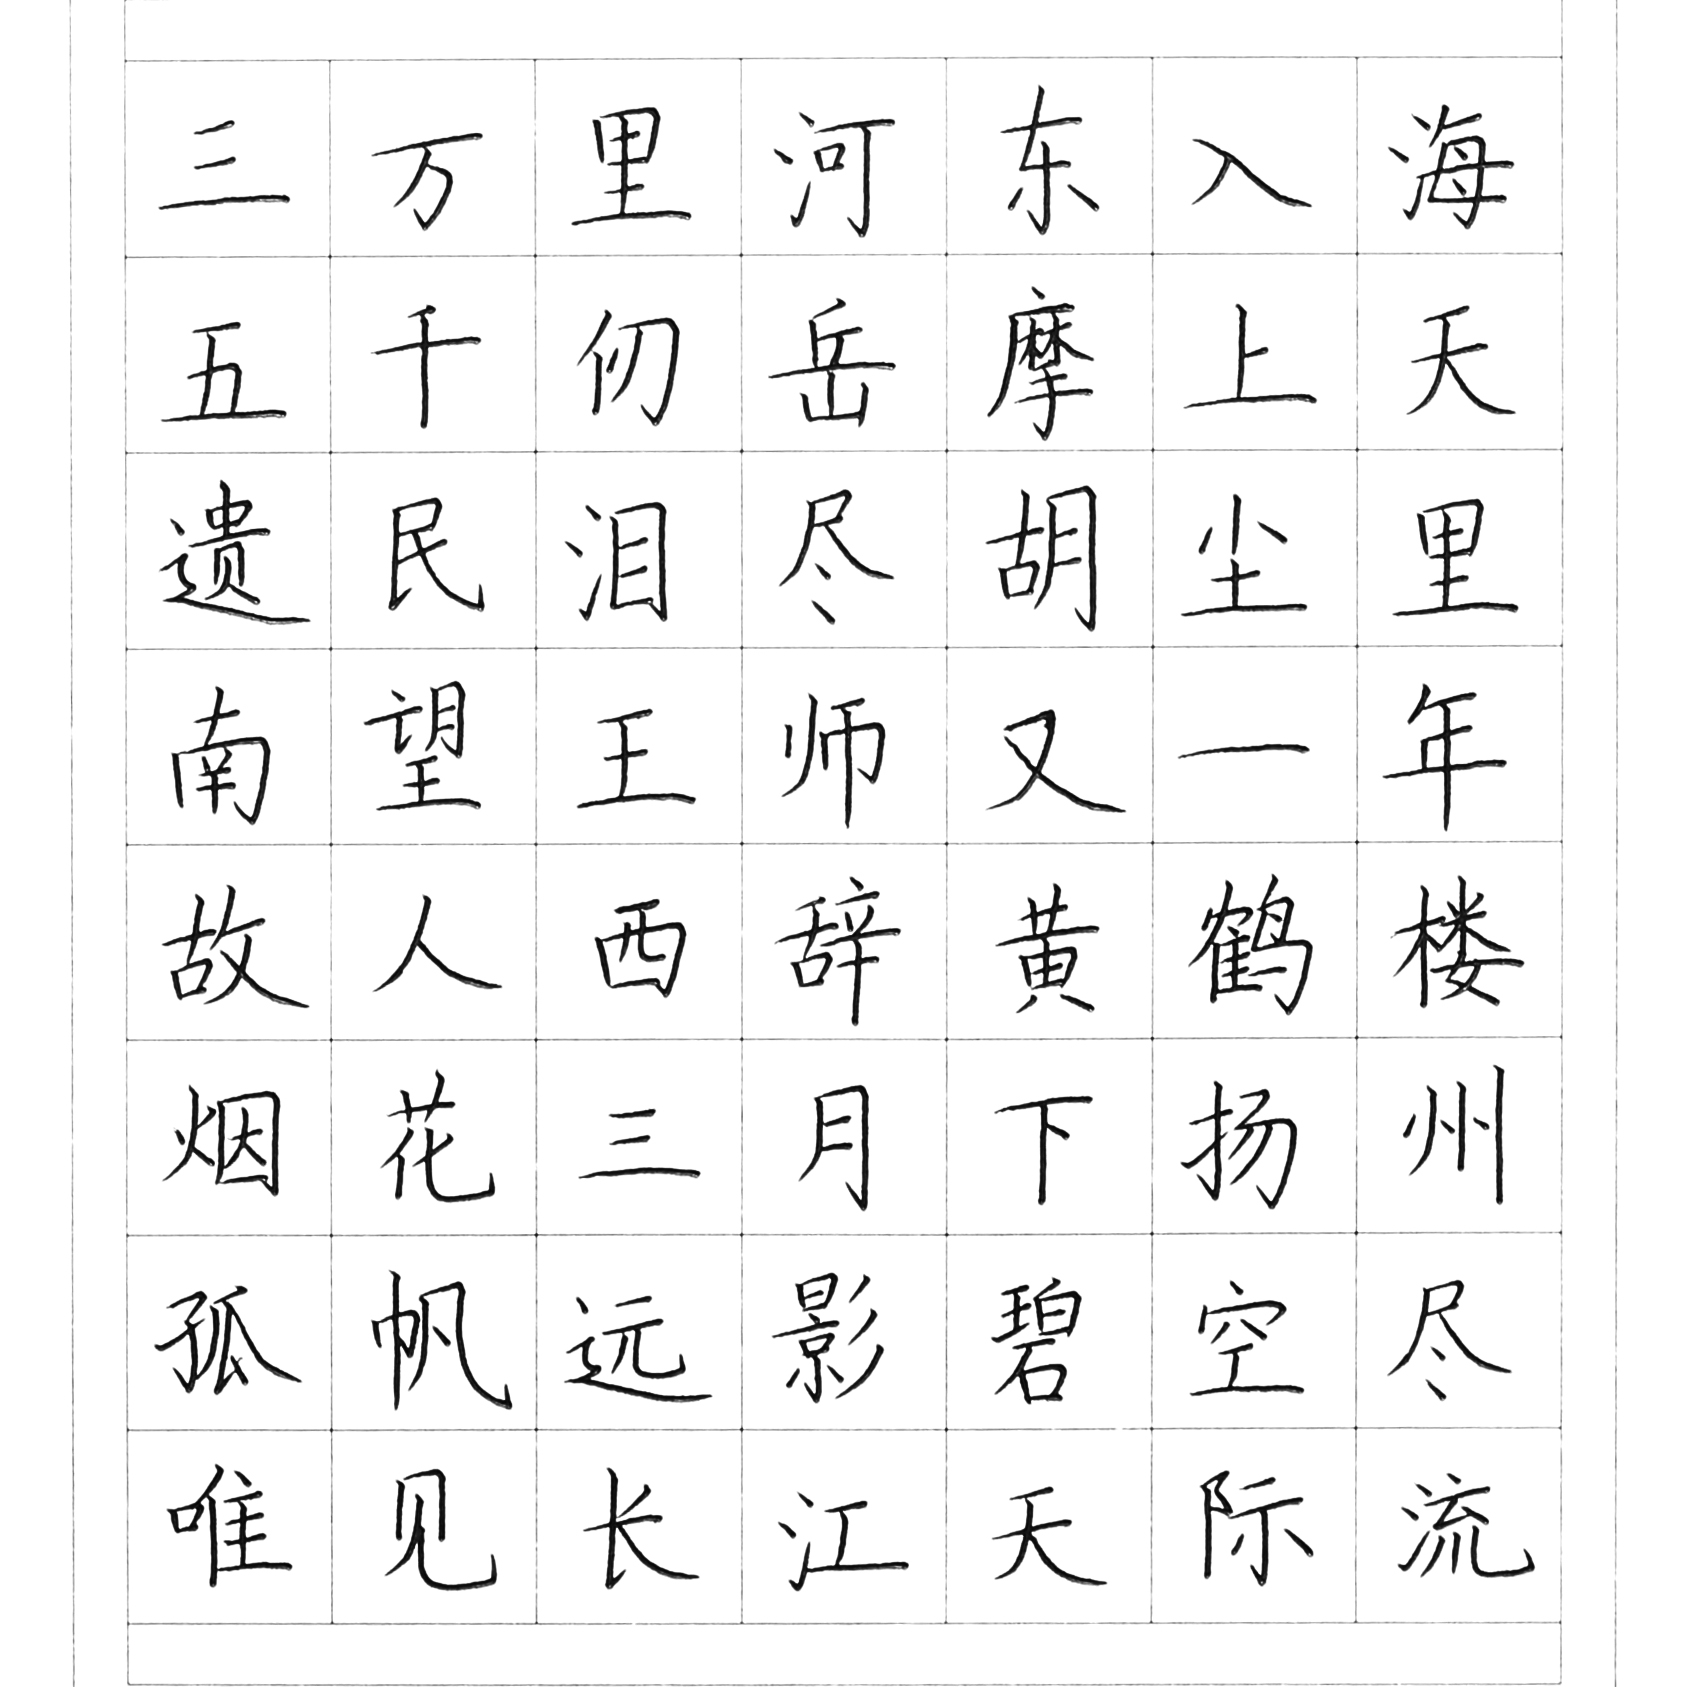 三万里河东入海
五千仞岳摩上天
遗民泪尽胡尘里
南望王师又一年
故人西辞黄鹤楼
烟花三月下扬州
孤帆远影碧空尽
唯见长江天际流